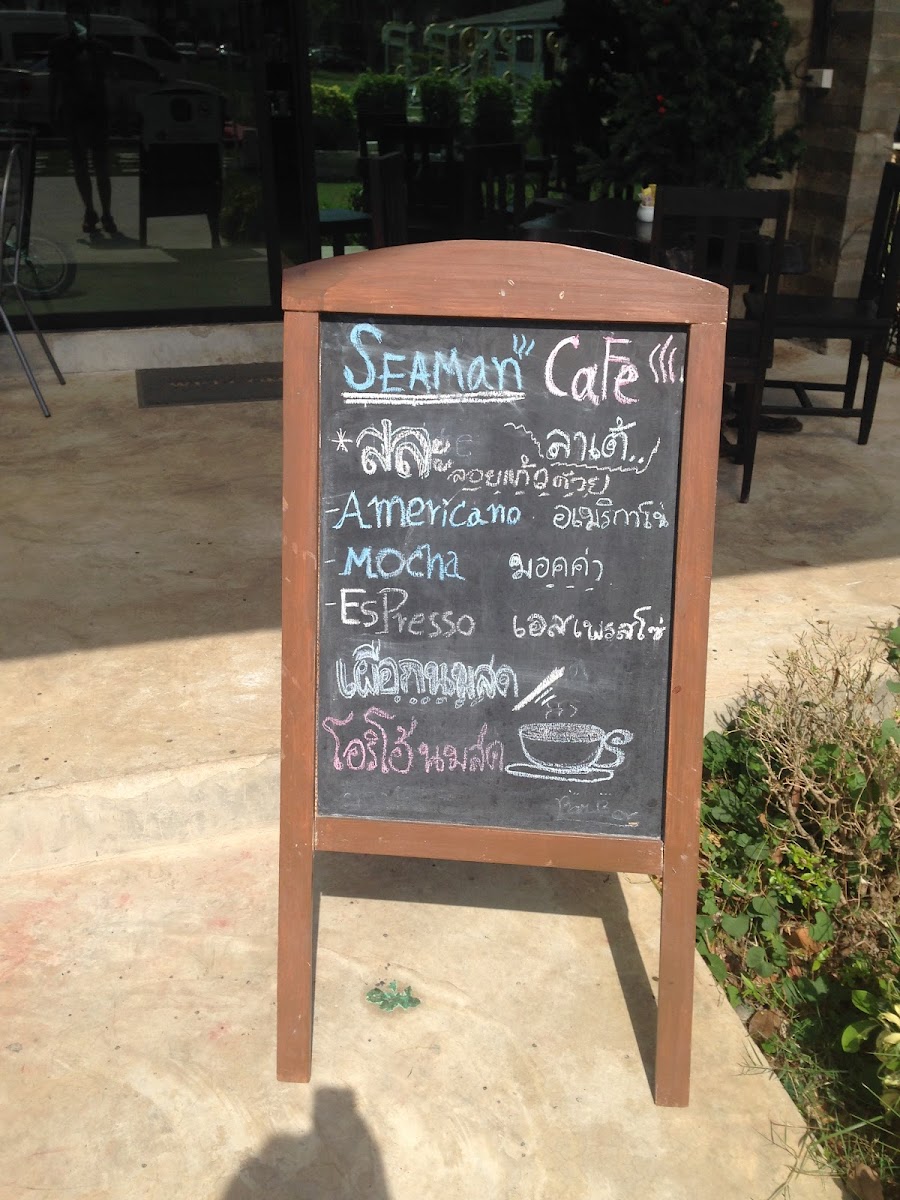 SEAMan CaFe
*สละ ลาเต้..
ลอยแก้วด้วย
-Americano อเมริกาโน่
-MOcha มอคค่า
-EsPresso เอสเพรสโซ่
เผือกนมสด
โอริโอ้นมสด